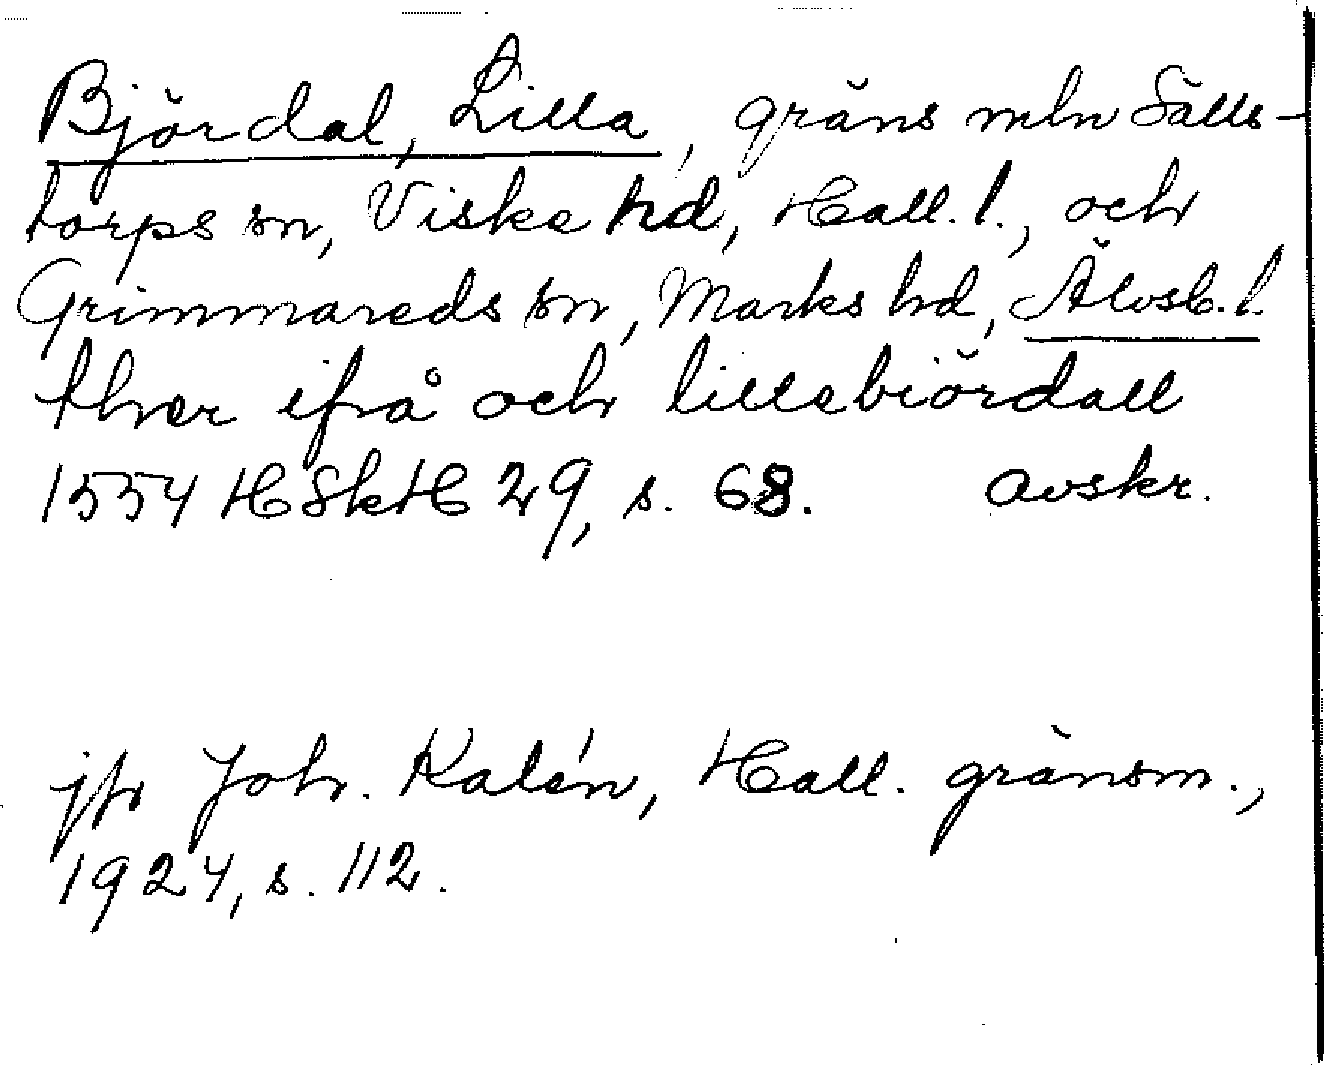 Björdal, Lilla, gräns mln Sälls-
torps sn, Viske hd, Hall. l., och
Grimmareds sn, Marks hd, Älvsb. l.
ther ifrå och lillebiördall
1554 HSkH 29, s. 68. avskr.
jfr Joh. Kalén, Hall. gränsm.,
1924, s. 112.